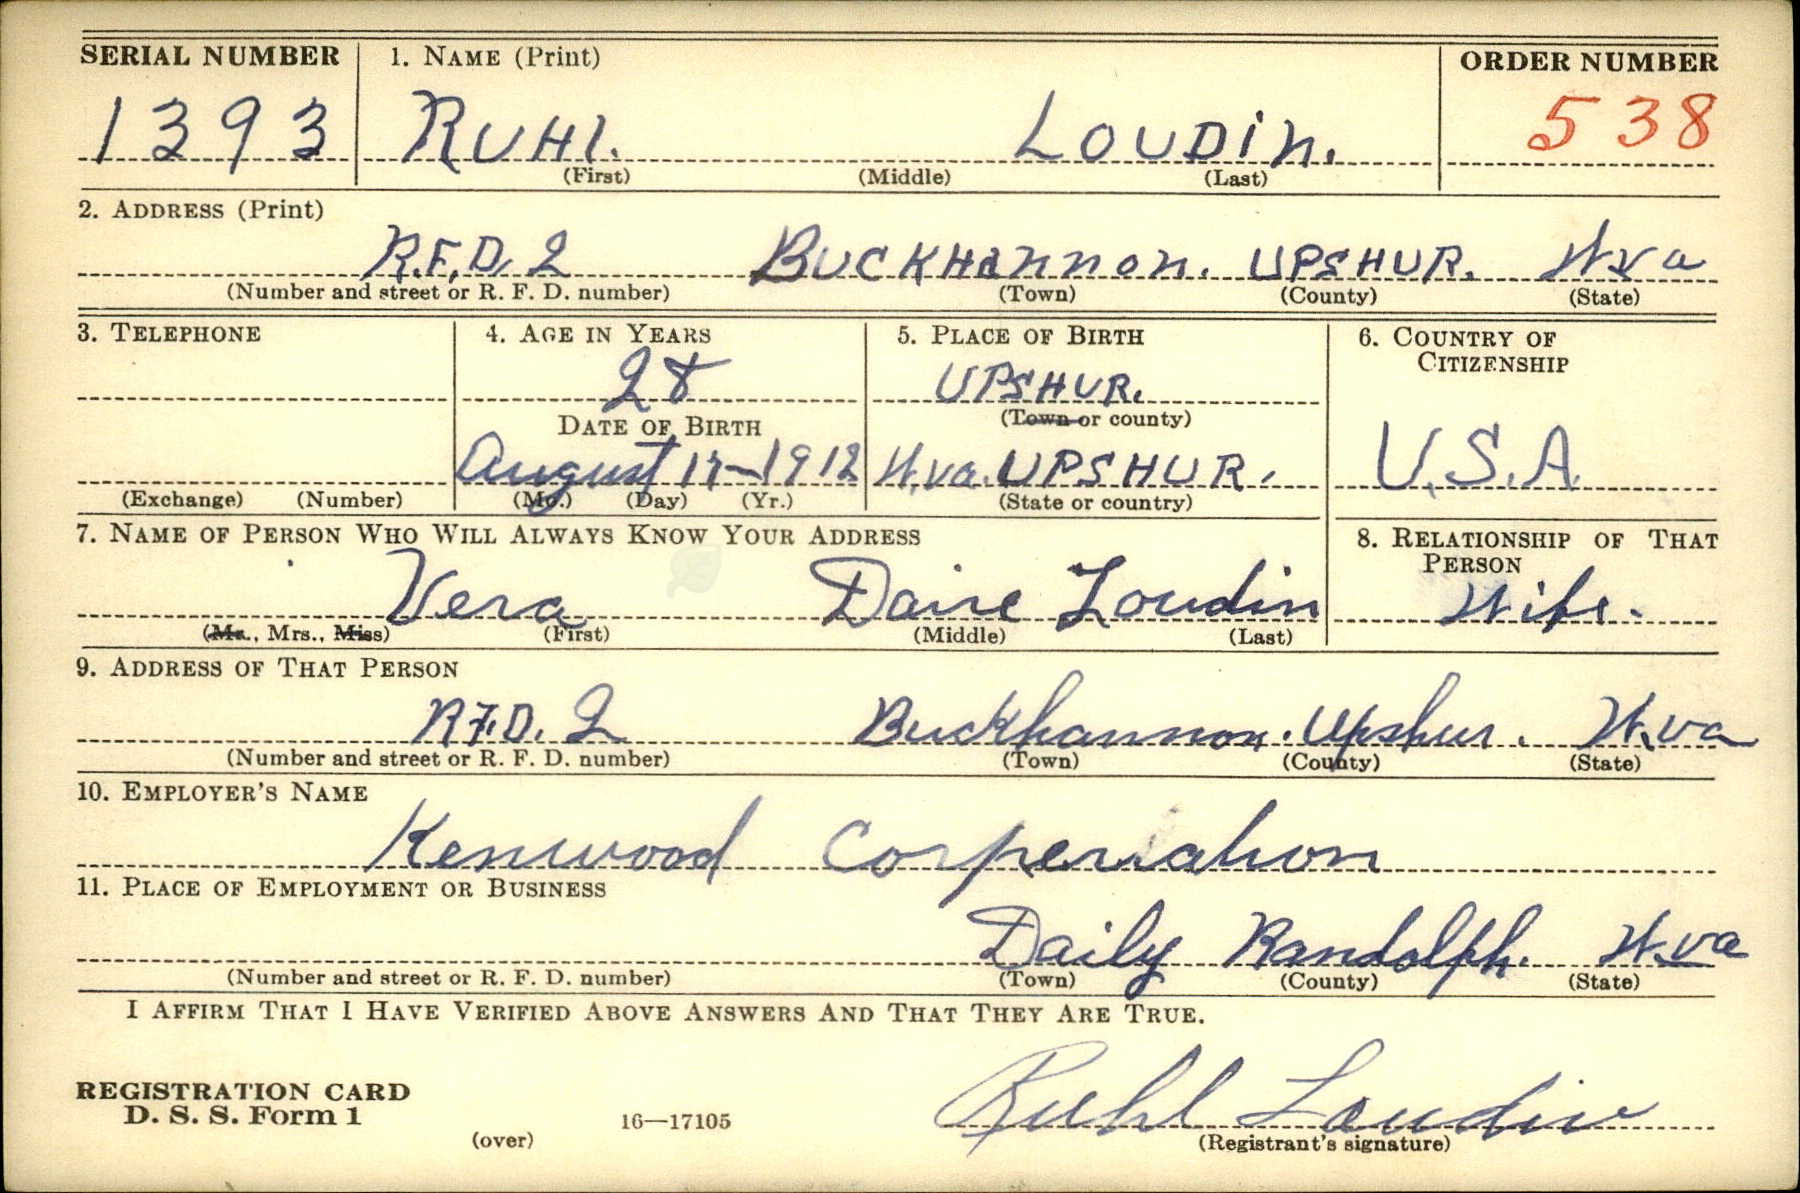 SERIAL NUMBER 1. NAME (Print) ORDER NUMBER
1393 RUHl. LOUDiN. 538
(First) (Middle) (Last)
2. ADDRESS (Print)
R.F.D. 2 BUCKHANNON. UPSHUR. W.Va
(Number and street or R. F. D. number) (Town) (County) (State)
3. TELEPHONE 4. AGE IN YEARS 5. PLACE OF BIRTH 6. COUNTRY OF CITIZENSHIP
28 UPSHUR.
DATE OF BIRTH (Town or county)
August 17-1912 W.va. UPSHUR. U.S.A.
(Exchange) (Number) (Mo.) (Day) (Yr.) (State or country)
7. NAME OF PERSON WHO WILL ALWAYS KNOW YOUR ADDRESS 8. RELATIONSHIP OF THAT PERSON
Vera Loudin Wife.
(Mr., Mrs., Miss) (First) (Middle) (Last)
9. ADDRESS OF THAT PERSON
R.F.D. 2 Buckhannon. Upshur. W.va
(Number and street or R. F. D. number) (Town) (County) (State)
10. EMPLOYER'S NAME
Kenwood Corperation
11. PLACE OF EMPLOYMENT OR BUSINESS
Daily Randolph. W.va
(Number and street or R. F. D. number) (Town) (County) (State)
I AFFIRM THAT I HAVE VERIFIED ABOVE ANSWERS AND THAT THEY ARE TRUE.
REGISTRATION CARD
D. S. S. Form 1 16—17105 Ruhl Loudin
(over) (Registrant's signature)